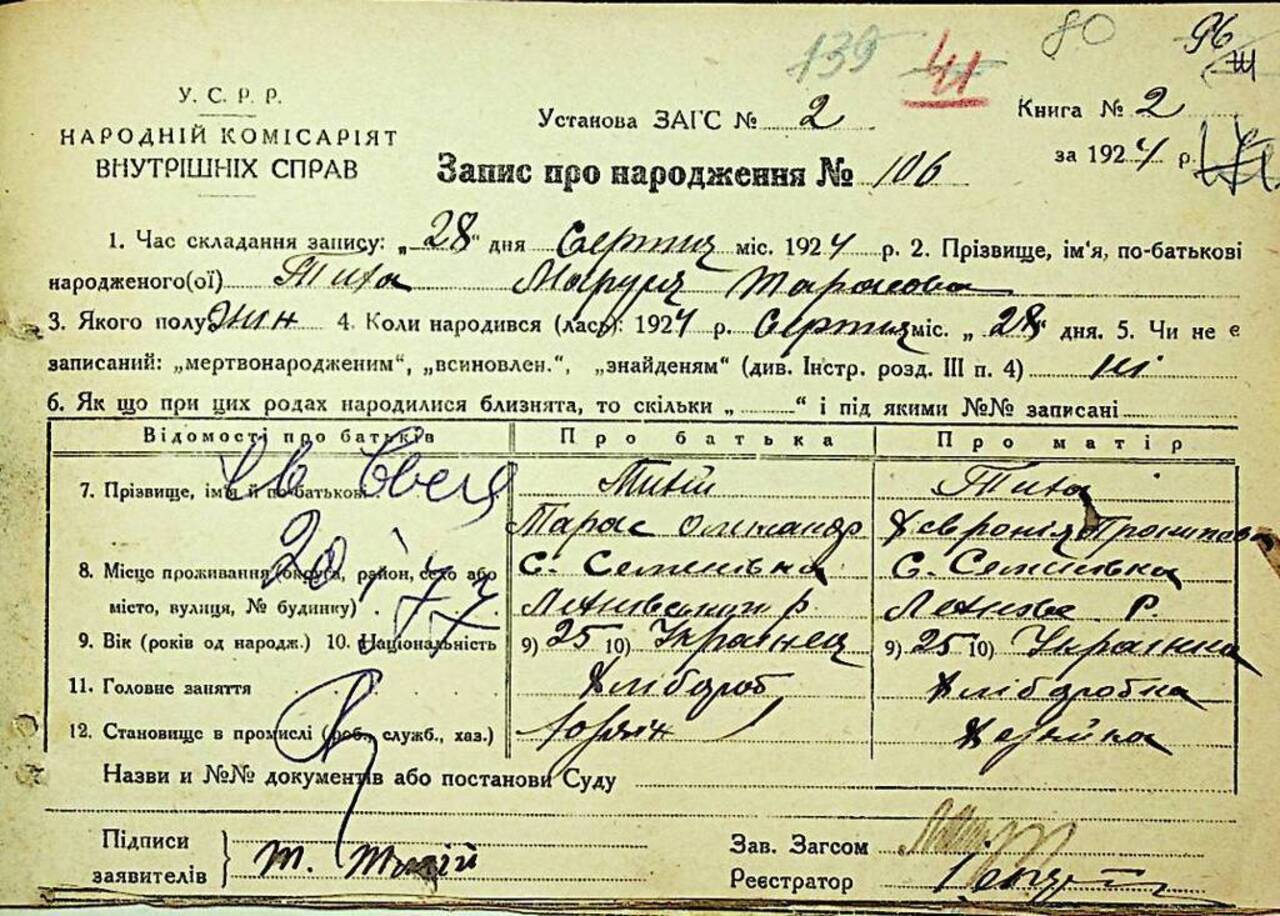 139 41 80 96
У. С. Р. Р.
НАРОДНІЙ КОМІСАРІЯТ
ВНУТРІШНІХ СПРАВ
Установа ЗАГС № 2
Книга № 2
за 1924 р.
Запис про народження № 106
1. Час складання запису: „28“ дня Серпня міс. 1924 р. 2. Прізвище, ім'я, по-батькові
народженого(ої) Тиха Маруся Тарасова
3. Якого полу жин 4. Коли народився (лась): 1924 р. Серпня міс. „28“ дня. 5. Чи не є
записаний: „мертвонародженим“, „всиновлен.“, „знайденям“ (див. Інстр. розд. III п. 4) ні
6. Як що при цих родах народилися близнята, то скільки „ “ і під якими №№ записані
Відомості про батьків Про батька Про матір
7. Прізвище, ім'я й по-батькові Тихій Тиха
Тарас Олександр Хевронія
8. Місце проживання (округа, район, село або с. Семенівка с. Семенівка
місто, вулиця, № будинку) р. р.
9. Вік (років од народж.) 10. Національність 9) 25 10) Українец 9) 25 10) Українка
11. Головне заняття Хлібороб Хліборобка
12. Становище в промислі (роб., служб., хаз.) Хазяїн Хазяйка
20 / 77
Назви и №№ документів або постанови Суду
Підписи
заявителів Т. Тихій
Зав. Загсом
Реєстратор